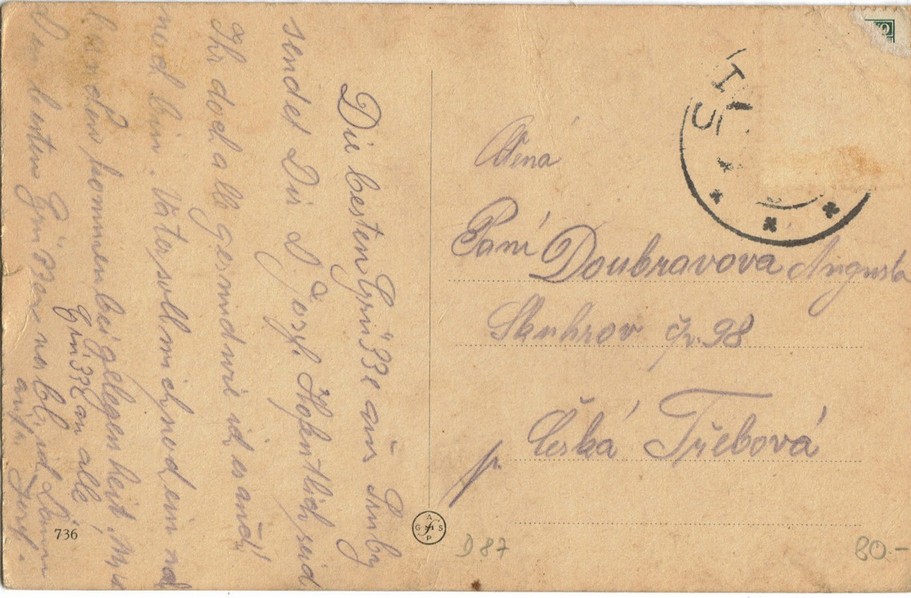 Die besten Grüße aus
sendet Dir D. Josef. Hofentlich seid
Ihr doch alle gesund wie ich es auch
noch bin. Vater soll mich noch ein
kommen bei gelegenheit.
Grüßße an alle!
Den besten Grüssen verbl.
Josef.
736
Ctěná
Paní Doubravova Augusta
Skuhrov čp. 98
p. Česká Třebová
D 87
80.-